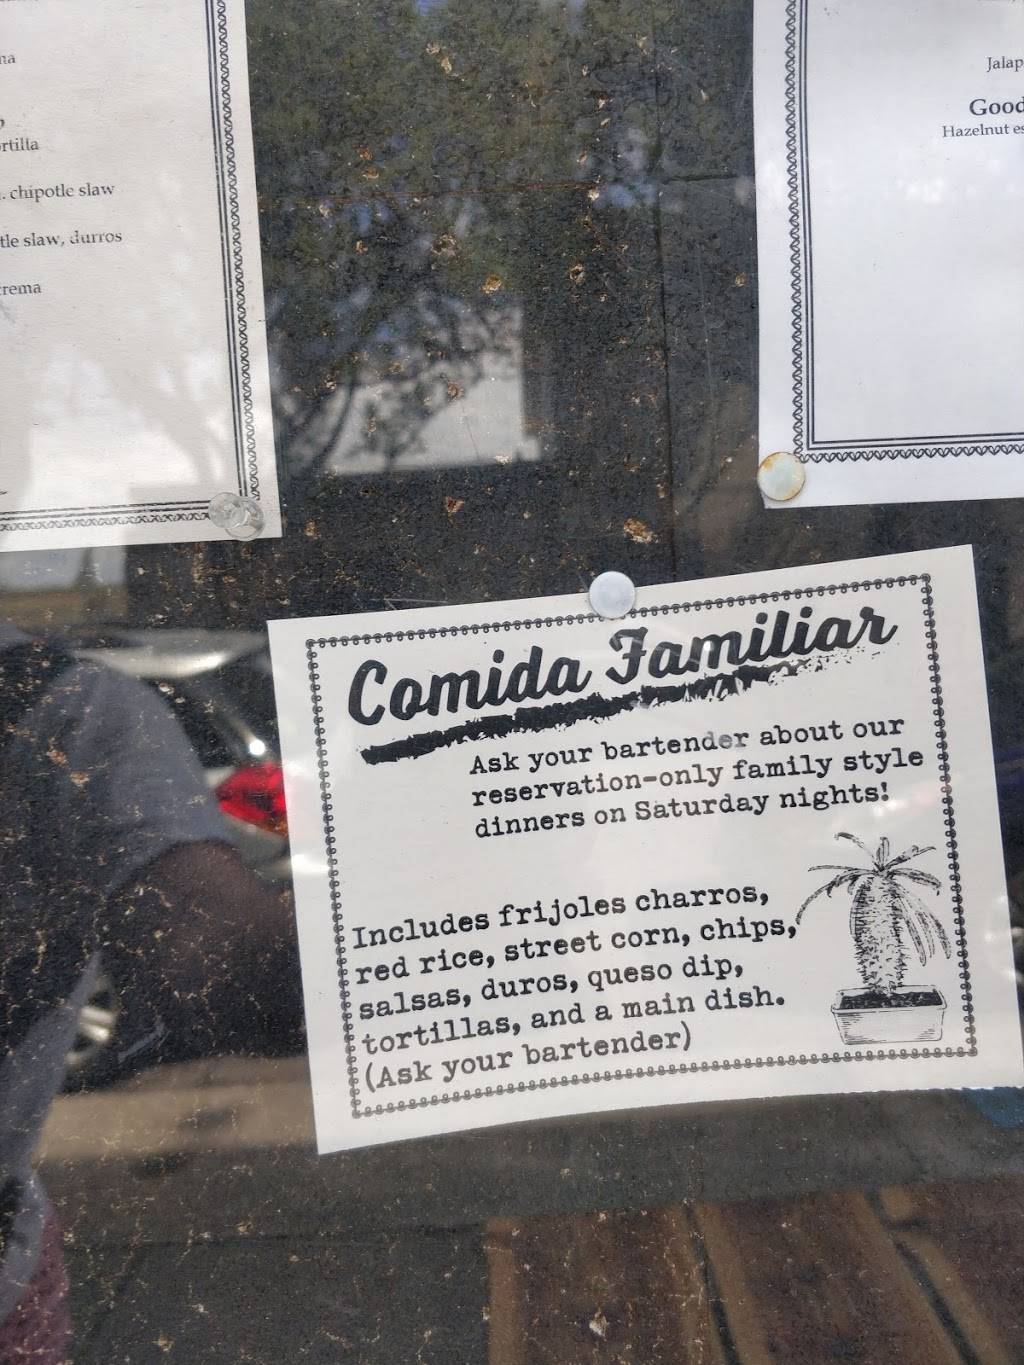 chipotle slaw
slaw, durros
Good
Hazelnut
Comida Familiar
Ask your bartender about our
reservation-only family style
dinners on Saturday nights!
Includes frijoles charros,
red rice, street corn, chips,
salsas, duros, queso dip,
tortillas, and a main dish.
(Ask your bartender)